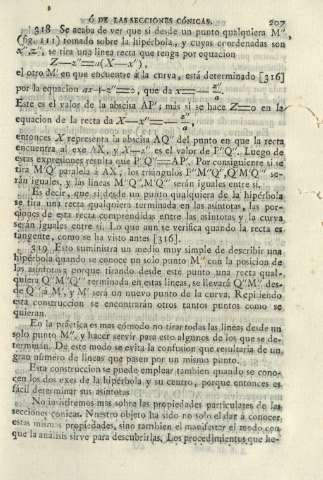 Ó DE LAS SECCIONES CÓNICAS. 207
318 Se acaba de ver que si desde un punto qualquiera M''
(fig. 111) tomado sobre la hipérbola, y cuyas coordenadas son
x'', z'', se tira una linea recta que tenga por equacion
Z—z''=a(X—x''),
el otro M' en que encuentre á la curva, está determinado [316]
por la equacion ax+z''=0, que da x=—z''/a.
Este es el valor de la abscisa AP'; más si se hace Z=0 en la
equacion de la recta da X—x''=—z''/a,
entonces X representa la abscisa AQ'' del punto en que la recta
encuentra al exe AX, y X—x'' es el valor de P''Q''. Luego de
estas expresiones resulta que P''Q''=AP'. Por consiguiente si se
tira M'Q' paralela á AX, los triángulos P''M''Q'', Q'M'Q'' se-
rán iguales, y las lineas M''Q'', M'Q' serán iguales entre sí.
Es decir, que si desde un punto qualquiera de la hipérbola
se tira una recta qualquiera terminada en las asíntotas, las por-
ciones de esta recta comprendidas entre las asíntotas y la curva
serán iguales entre sí. Lo que aun se verifica quando la recta es
tangente, como se ha visto antes [316].
319 Esto suministra un medio muy simple de describir una
hipérbola quando se conoce un solo punto M'' con la posicion de
las asíntotas; porque tirando desde este punto una recta qual-
quiera Q''M''Q' terminada en estas lineas, se llevará Q''M'' des-
de Q' á M', y M' será un nuevo punto de la curva. Repitiendo
esta construccion se encontrarán otros tantos puntos como se
quieran.
En la práctica es mas cómodo no tirar todas las lineas desde un
solo punto M'', y hacer servir para esto algunos de los que se de-
terminan. De este modo se evita la confusion que resultaria de un
gran número de lineas que pasen por un mismo punto.
Esta construccion se puede emplear tambien quando se cono-
cen los dos exes de la hipérbola y su centro, porque entonces es
fácil determinar sus asíntotas
No insistiremos mas sobre las propiedades particulares de las
secciones cónicas. Nuestro objeto ha sido no solo el dar á conocer
estas mismas propiedades, sino tambien el manifestar el modo con
que la análisis sirve para descubrirlas. Los procedimientos que he-